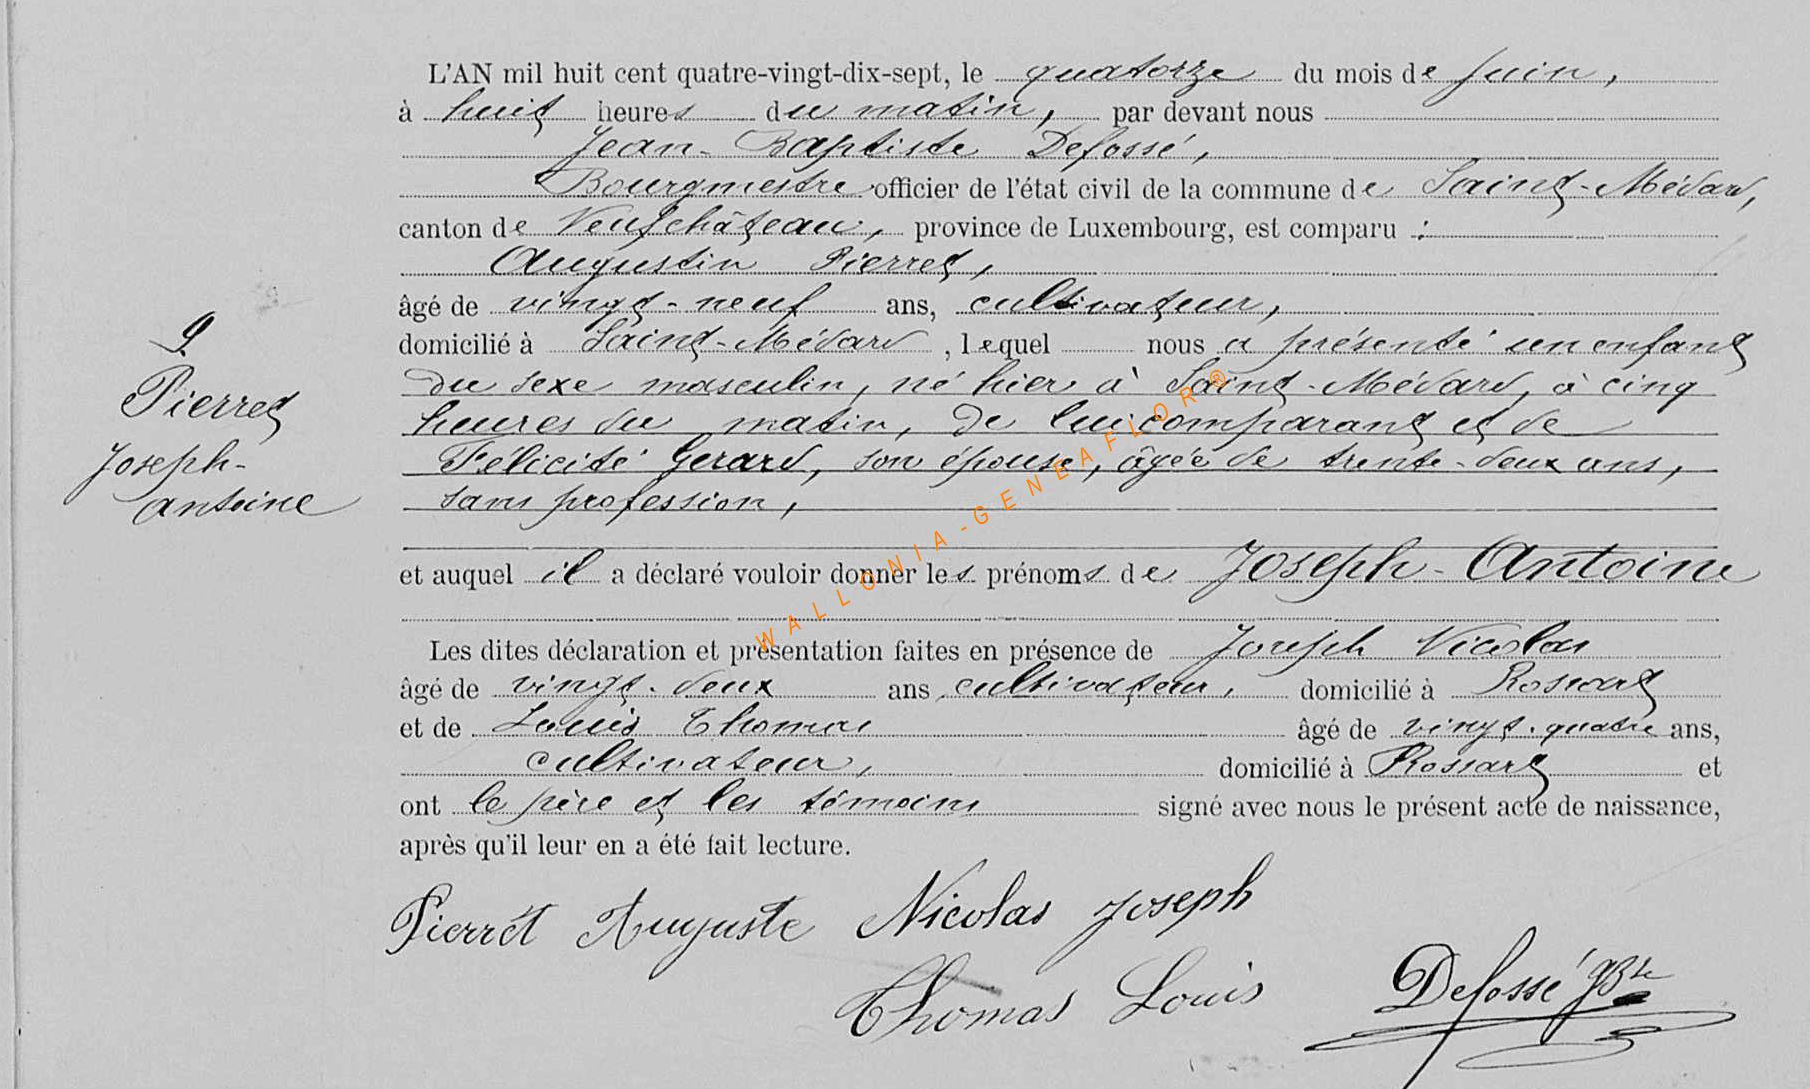 L'AN mil huit cent quatre-vingt-dix-sept, le quatorze du mois de juin,
à huit heures du matin, par devant nous
Jean-Baptiste Defossé,
Bourgmestre officier de l'état civil de la commune de Saint-Médard,
canton de Neufchâteau, province de Luxembourg, est comparu :
Augustin Pierret,
âgé de vingt-neuf ans, cultivateur,
domicilié à Saint-Médard, lequel nous a présenté un enfant
du sexe masculin, né hier à Saint-Médard, à cinq
heures du matin, de lui comparant et de
Félicité Gerard, son épouse, âgée de trente-deux ans,
sans profession,
9
Pierret
Joseph-
antoine
et auquel il a déclaré vouloir donner les prénoms de Joseph-Antoine
Les dites déclaration et présentation faites en présence de Joseph Nicolas
âgé de vingt-deux ans, cultivateur, domicilié à Rossart
et de Louis Thomas âgé de vingt-quatre ans,
cultivateur, domicilié à Rossart et
ont le père et les témoins signé avec nous le présent acte de naissance,
après qu'il leur en a été fait lecture.
WALLONIA-GENEAFLOR®
Pierrét Auguste Nicolas Joseph
Thomas Louis Defossé JBte